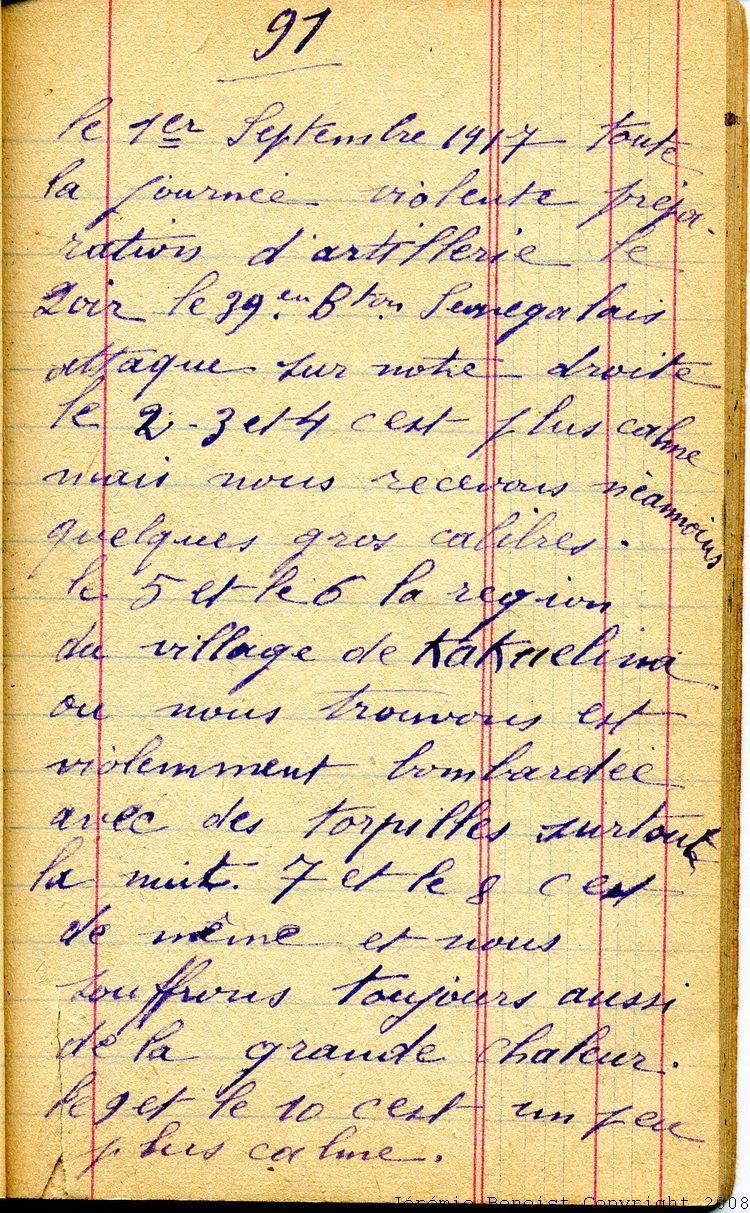 91
le 1er Septembre 1917 toute
la journée violente prépa-
ration d'artillerie le
Soir le 39.em Bton Senegalais
attaque sur notre droite
le 2-3 et 4 c'est plus calme
mais nous recevons néanmoins
quelques gros calibres.
le 5 et le 6 la region
du village de Kakuelina
ou nous trouvons est
violemment bombardée
avec des torpilles surtout
la nuit. 7 et le 8 c'est
de même et nous
souffrons toujours aussi
de la grande chaleur.
le 9 et le 10 c'est un peu
plus calme.
Jérémie Benoist Copyright 2008